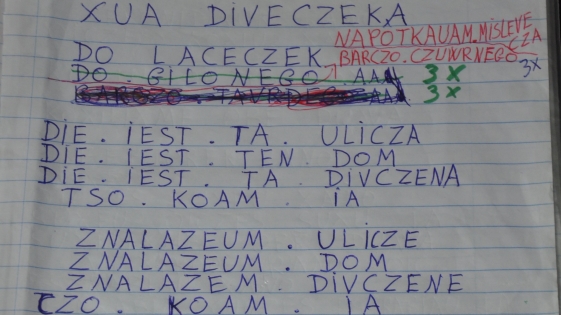 XUA DiVECZEKA
NAPOTKAUAM.MiSLEVE
CZA
DO LACECZEK.
BARCZO.CZUWRNEGO
3X
DO.GiLONEGO AAA 3X
AAA 3X
DiE.iEST.TA.ULiCZA
DiE.iEST.TEN DOM
DiE.iEST.TA.DiVCZENA
TSO.KOAM.iA
ZNALAZEUM.ULiCZE
ZNALAZEUM.DOM
ZNALAZEM.DiVCZENE
CZO.KOAM.iA